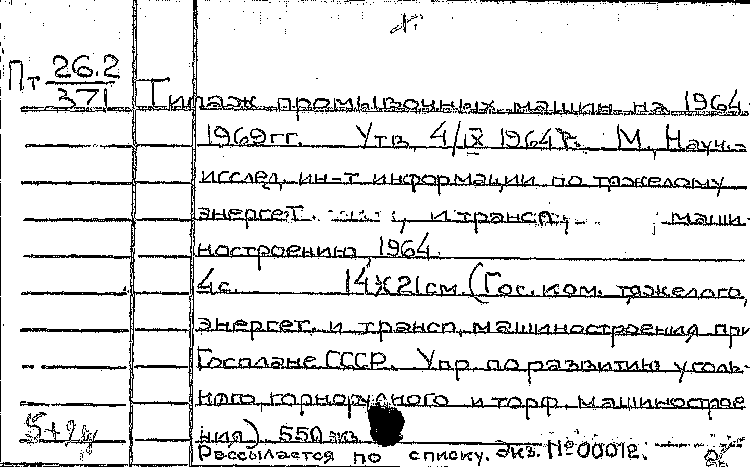 Пт 26.2
371
Типаж промывочных машин на 1964
1969гг. Утв. 4/IX 1964г. М., Научн.-
исслед. ин-т информации по тяжелому
энергет. , и трансп. маши-
ностроению, 1964.
4с. 14х21см. (Гос. ком. тяжелого,
энергет. и трансп. машиностроения при
Госплане СССР. Упр. по развитию уголь-
ного горнорудного и торф. машинострое
ния) 550 экз.
Рассылается по списку. Экз. №00012.